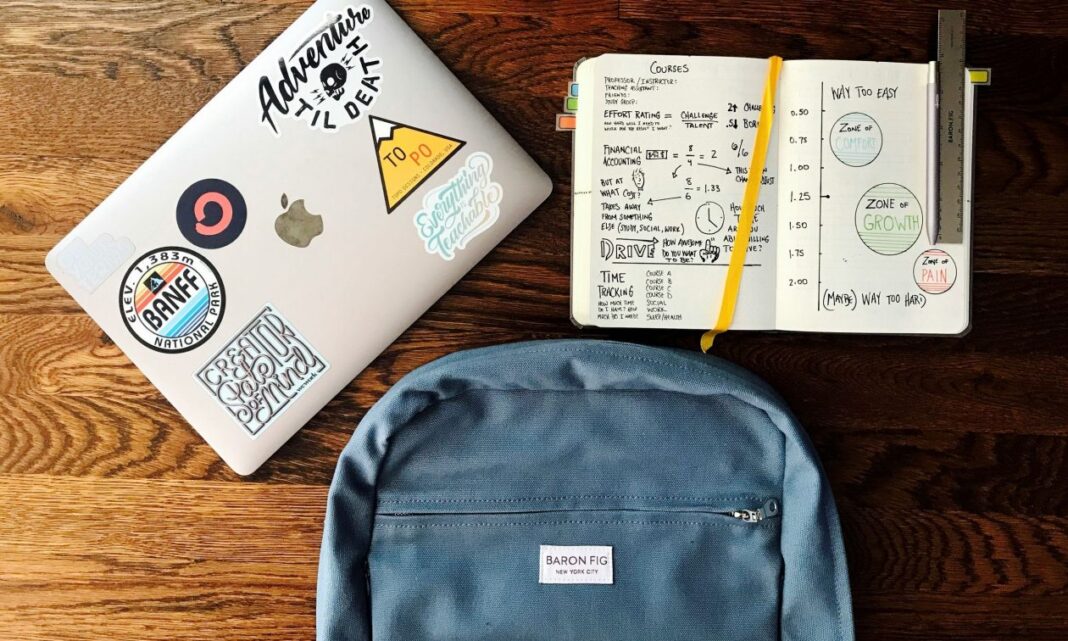 Adventure
TIL DEATH
TO
PO
TOPO DESIGNS / COLORADO, USA
Everything is
Teachable
ELEV. 1,383m
BANFF
NATIONAL PARK
CREATOR
State
of Mind
wework
COURSES
PROFESSOR / INSTRUCTOR:
TEACHING ASSISTANT:
FRIENDS:
STUDY GROUP:
EFFORT RATING = CHALLENGE
TALENT
HOW HARD WILL I NEED TO
WORK FOR THE RESULT I WANT?
2↑ CHALL
.5↓ BOR
FINANCIAL
ACCOUNTING
= 8/4 = 2
6/6
THIS
CHA
BUT AT
WHAT COST?
8/6 = 1.33
TAKES AWAY
FROM SOMETHING
ELSE (STUDY, SOCIAL, WORK)
HOW MUCH
ARE YOU
DRIVE
HOW AWESOME
DO YOU WANT
TO BE?
TIME
TRACKING
HOW MUCH TIME
DO I HAVE? HOW
MUCH DO I NEED?
COURSE A
COURSE B
COURSE C
COURSE D
SOCIAL
WORK
SLEEP/HEALTH
WAY TOO EASY
0.50
0.75
1.00
1.25
1.50
1.75
2.00
ZONE OF
COMFORT
ZONE OF
GROWTH
ZONE OF
PAIN
(MAYBE) WAY TOO HARD
BARON FIG
BARON FIG
NEW YORK CITY